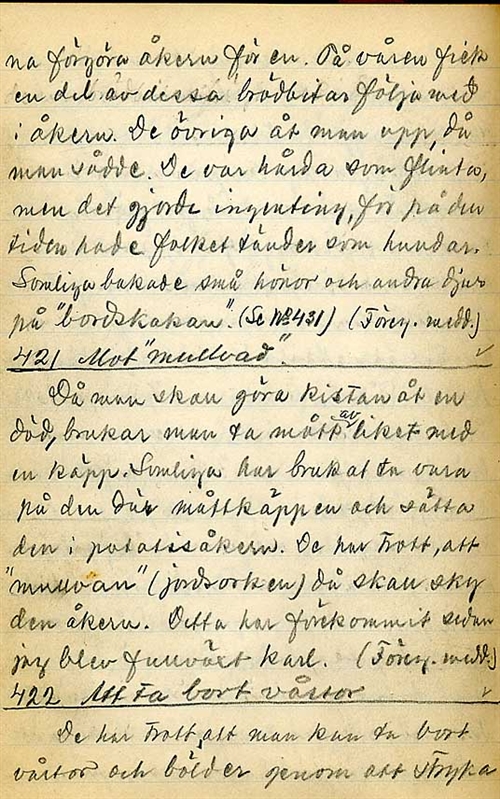 na förgöra åkern för en. På våren fick
en del av dessa brödbitar följa med
i åkern. De övriga åt man upp, då
man sådde. De var hårda som flinta,
men det gjorde ingenting, för på den
tiden hade folket tänder som hundar.
Somliga bakade små hönor och andra djur
på "bordskakan". (Se №431) (Förey. medd.)
421 Mot "mullvad".
Då man skall göra kistan åt en
död, brukar man ta mått av liket med
en käpp. Somliga har brukat ta vara
på den där måttkäppen och sätta
den i potatisåkern. De har trott, att
"mullvan" (jordsorken) då skall sky
den åkern. Detta har förekommit sedan
jag blev fullväxt karl. (Förey. medd.)
422 Att ta bort vårtor
De har trott, att man kan ta bort
vårtor och bölder genom att stryka